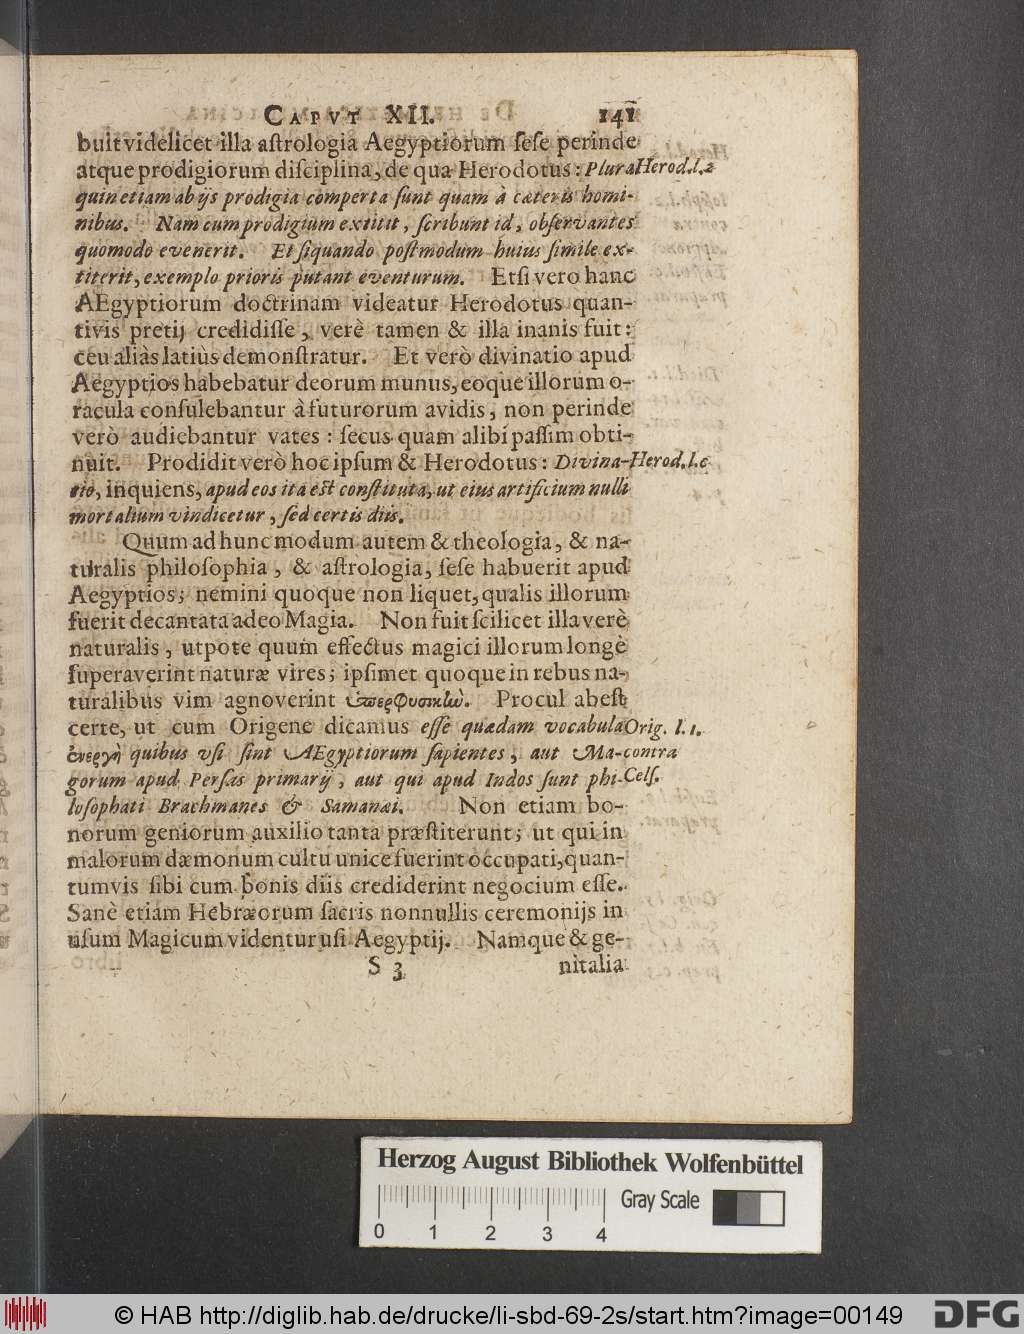 CAPVT XII. 141
buit videlicet illa aſtrologia Aegyptiorum ſeſe perinde
atque prodigiorum diſciplina, de qua Herodotus: Plura Herod. l. 2
quin etiam ab ijs prodigia comperta ſunt quam à cæteris homi-
nibus. Nam cum prodigium extitit, ſcribunt id, obſervantes
quomodo evenerit. Et ſiquando poſtmodum huius ſimile ex-
titerit, exemplo prioris putant eventurum. Etſi vero hanc
AEgyptiorum doctrinam videatur Herodotus quan-
tivis pretij credidiſſe, verè tamen & illa inanis fuit:
ceu aliàs latiùs demonſtratur. Et verò divinatio apud
Aegyptios habebatur deorum munus, eoque illorum o-
racula conſulebantur à futurorum avidis, non perinde
verò audiebantur vates: ſecus quam alibi paſſim obti-
nuit. Prodidit verò hoc ipſum & Herodotus: Divina- Herod. l. e
tio, inquiens, apud eos ita eſt conſtituta, ut eius artificium nulli
mortalium vindicetur, ſed certis diis.
Quum ad hunc modum autem & theologia, & na-
turalis philoſophia, & aſtrologia, ſeſe habuerit apud
Aegyptios; nemini quoque non liquet, qualis illorum
fuerit decantata adeo Magia. Non fuit ſcilicet illa verè
naturalis, utpote quum effectus magici illorum longè
ſuperaverint naturæ vires; ipſimet quoque in rebus na-
turalibus vim agnoverint ὑπερφυσικὼ. Procul abeſt
certe, ut cum Origene dicamus eſſe quædam vocabula Orig. l. 1.
ἐνεργῆ quibus uſi ſint AEgyptiorum ſapientes, aut Ma- contra
gorum apud Perſas primarij, aut qui apud Indos ſunt phi- Celſ.
loſophati Brachmanes & Samanæi. Non etiam bo-
norum geniorum auxilio tanta præſtiterunt; ut qui in
malorum dæmonum cultu unice fuerint occupati, quan-
tumvis ſibi cum bonis diis crediderint negocium eſſe.
Sanè etiam Hebræorum ſacris nonnullis ceremonijs in
uſum Magicum videntur uſi Aegyptij. Namque & ge-
S 3 nitalia
Herzog August Bibliothek Wolfenbüttel
Gray Scale
0 1 2 3 4
© HAB http://diglib.hab.de/drucke/li-sbd-69-2s/start.htm?image=00149
DFG